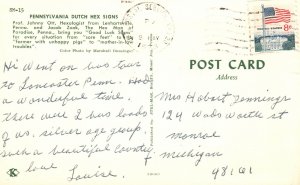 HM-15
PENNSYLVANIA DUTCH HEX SIGNS
Prof. Johnny Ott, Hexologist from Lenhartsville,
Penna. and Jacob Zook, The Hex Man of
Paradise, Penna., bring you "Good Luck Signs"
for every situation from "sore feet" to the
"farmer with unhappy pigs" to "mother-in-law
troubles".
Color Photo by
Hi Went on bus tour
to Lancaster Penn. Had
a wonderful time.
there were 2 bus loads
of us, silver age group,
such a beautiful Country
love
Louise.
K
8c
POST CARD
Address
Mrs Hobart Jennings
124 Wadsworth st
monroe
michigan
48161